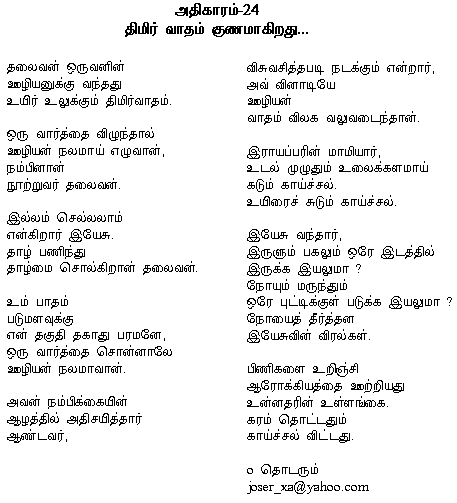 அதிகாரம்-24
திமிர் வாதம் குணமாகிறது...
தலைவன் ஒருவனின்
ஊழியனுக்கு வந்தது
உயிர் உலுக்கும் திமிர்வாதம்.
ஒரு வார்த்தை விழுந்தால்
ஊழியன் நலமாய் எழுவான்,
நம்பினான்
நூற்றுவர் தலைவன்.
இல்லம் செல்லலாம்
என்கிறார் இயேசு.
தாழ் பணிந்து
தாழ்மை சொல்கிறான் தலைவன்.
உம் பாதம்
படுமளவுக்கு
என் தகுதி தகாது பரமனே,
ஒரு வார்த்தை சொன்னாலே
ஊழியன் நலமாவான்.
அவன் நம்பிக்கையின்
ஆழத்தில் அதிசயித்தார்
ஆண்டவர்,
விசுவசித்தபடி நடக்கும் என்றார்,
அவ் வினாடியே
ஊழியன்
வாதம் விலக வலுவடைந்தான்.
இராயப்பரின் மாமியார்,
உடல் முழுதும் உலைக்களமாய்
கடும் காய்ச்சல்.
உயிரைச் சுடும் காய்ச்சல்.
இயேசு வந்தார்,
இருளும் பகலும் ஒரே இடத்தில்
இருக்க இயலுமா ?
நோயும் மருந்தும்
ஒரே புட்டிக்குள் படுக்க இயலுமா ?
நோயைத் தீர்த்தன
இயேசுவின் விரல்கள்.
பிணிகளை உறிஞ்சி
ஆரோக்கியத்தை ஊற்றியது
உன்னதரின் உள்ளங்கை.
கரம் தொட்டதும்
காய்ச்சல் விட்டது.
o தொடரும்
joser_xa@yahoo.com